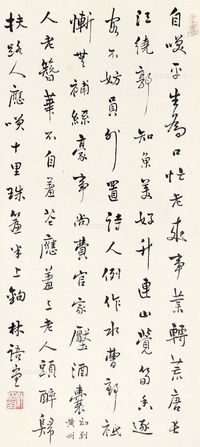 自咲平生為口忙老來事業轉荒唐長
江繞郭知魚美好竹連山覺筍香逐
客不妨員外置詩人例作水曹郎祗
慚無補絲毫事尚費官家壓酒囊初到黃州
人老簪華不自羞花應羞上老人頭醉歸
扶路人應咲十里珠簾半上鉤 林語堂